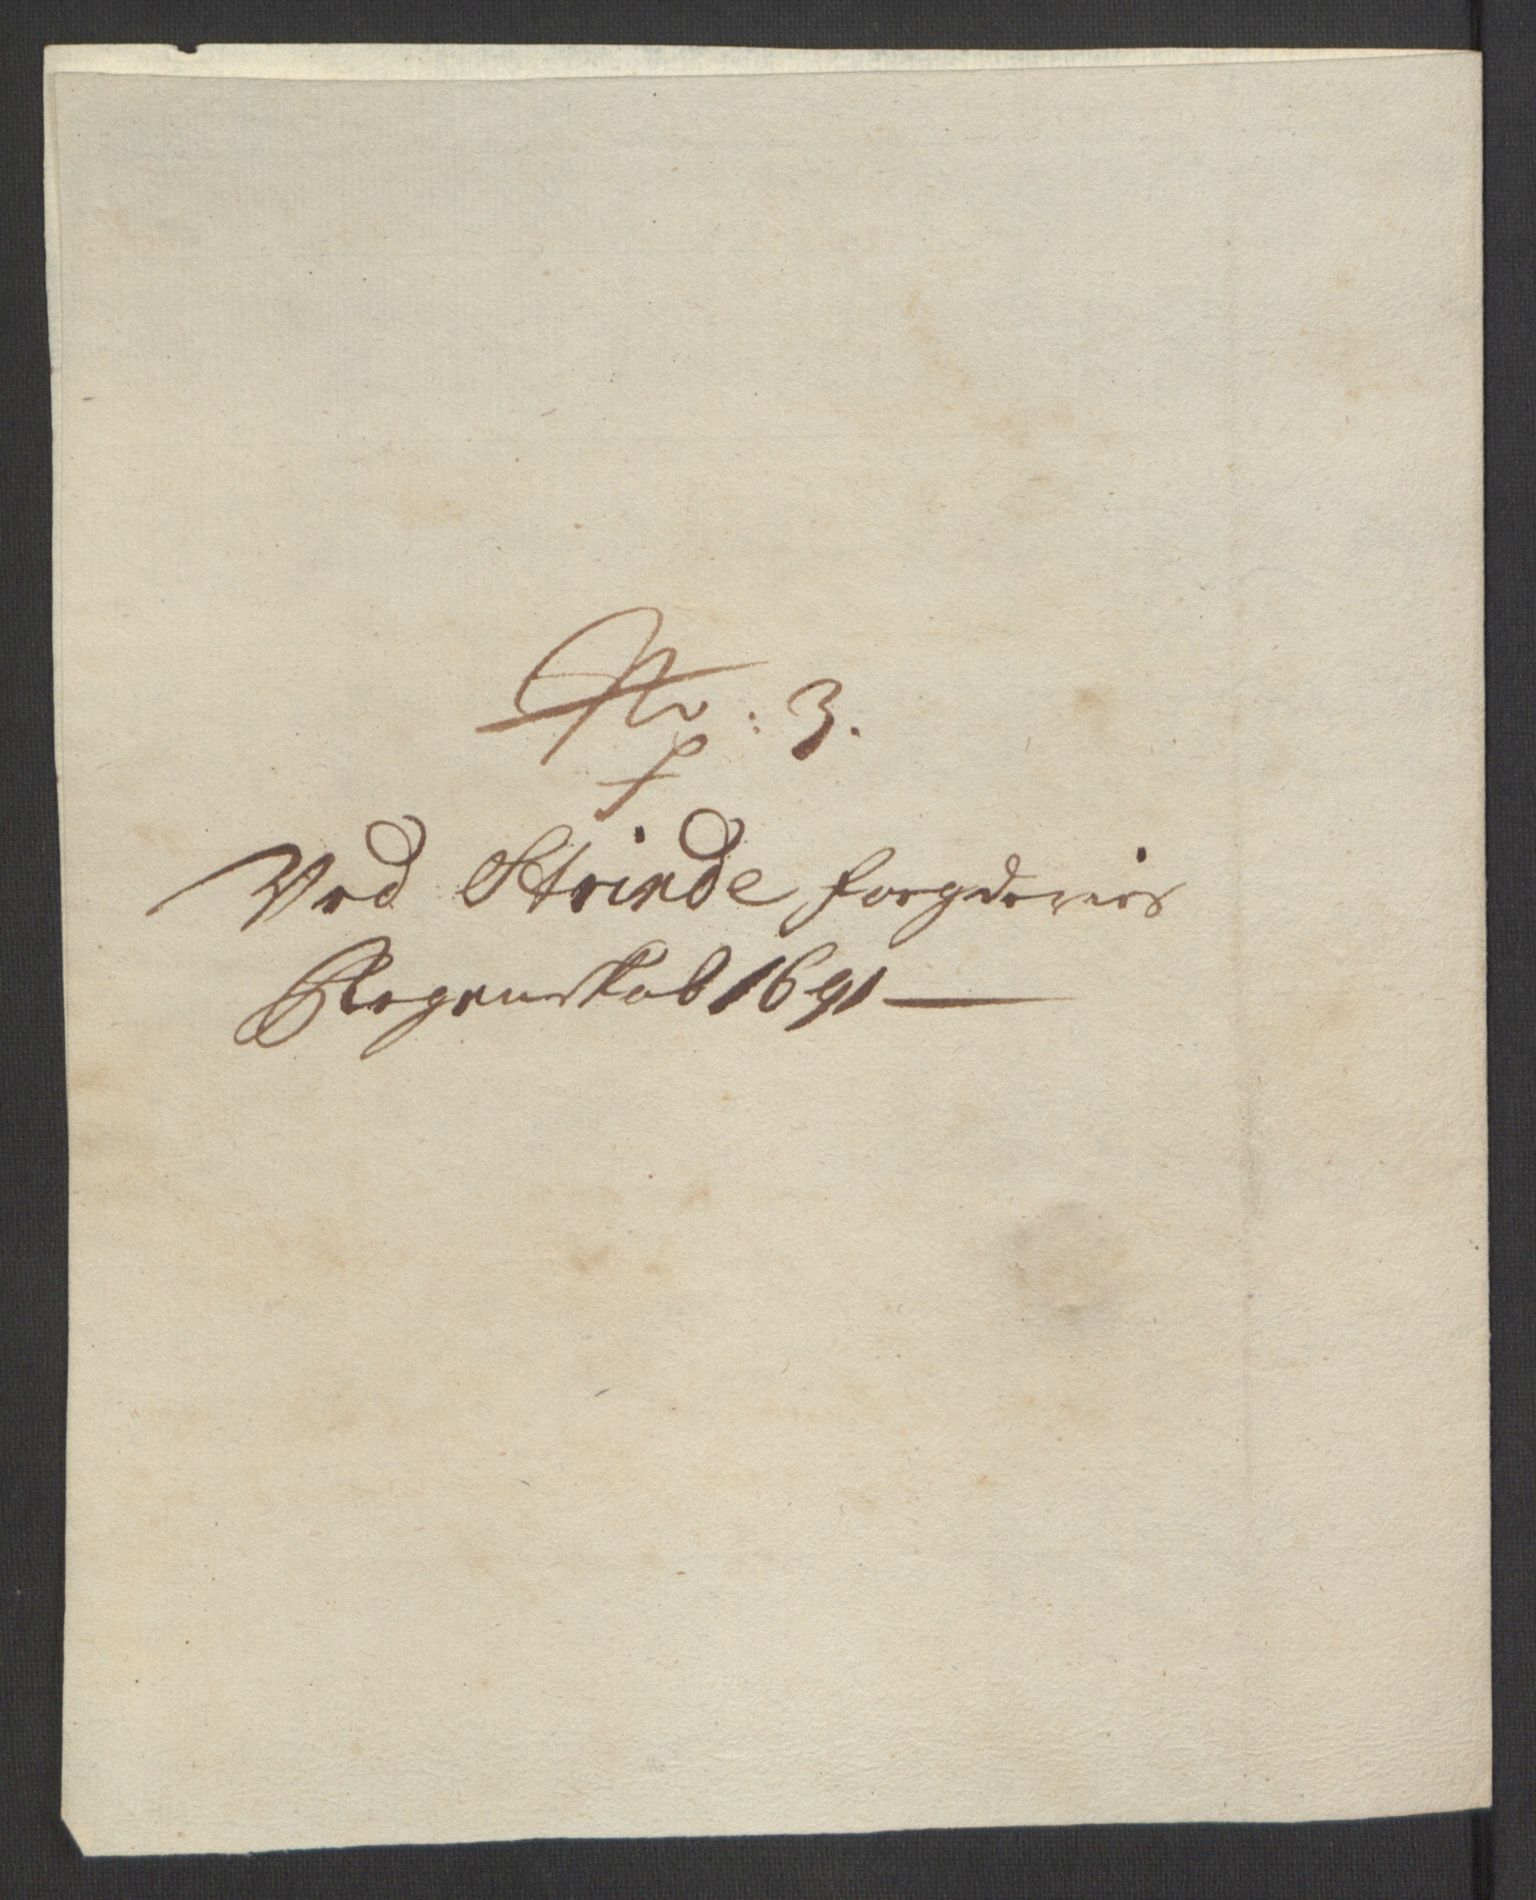 No: 3.
Ved Strinde fogderies
Regenskab 1691